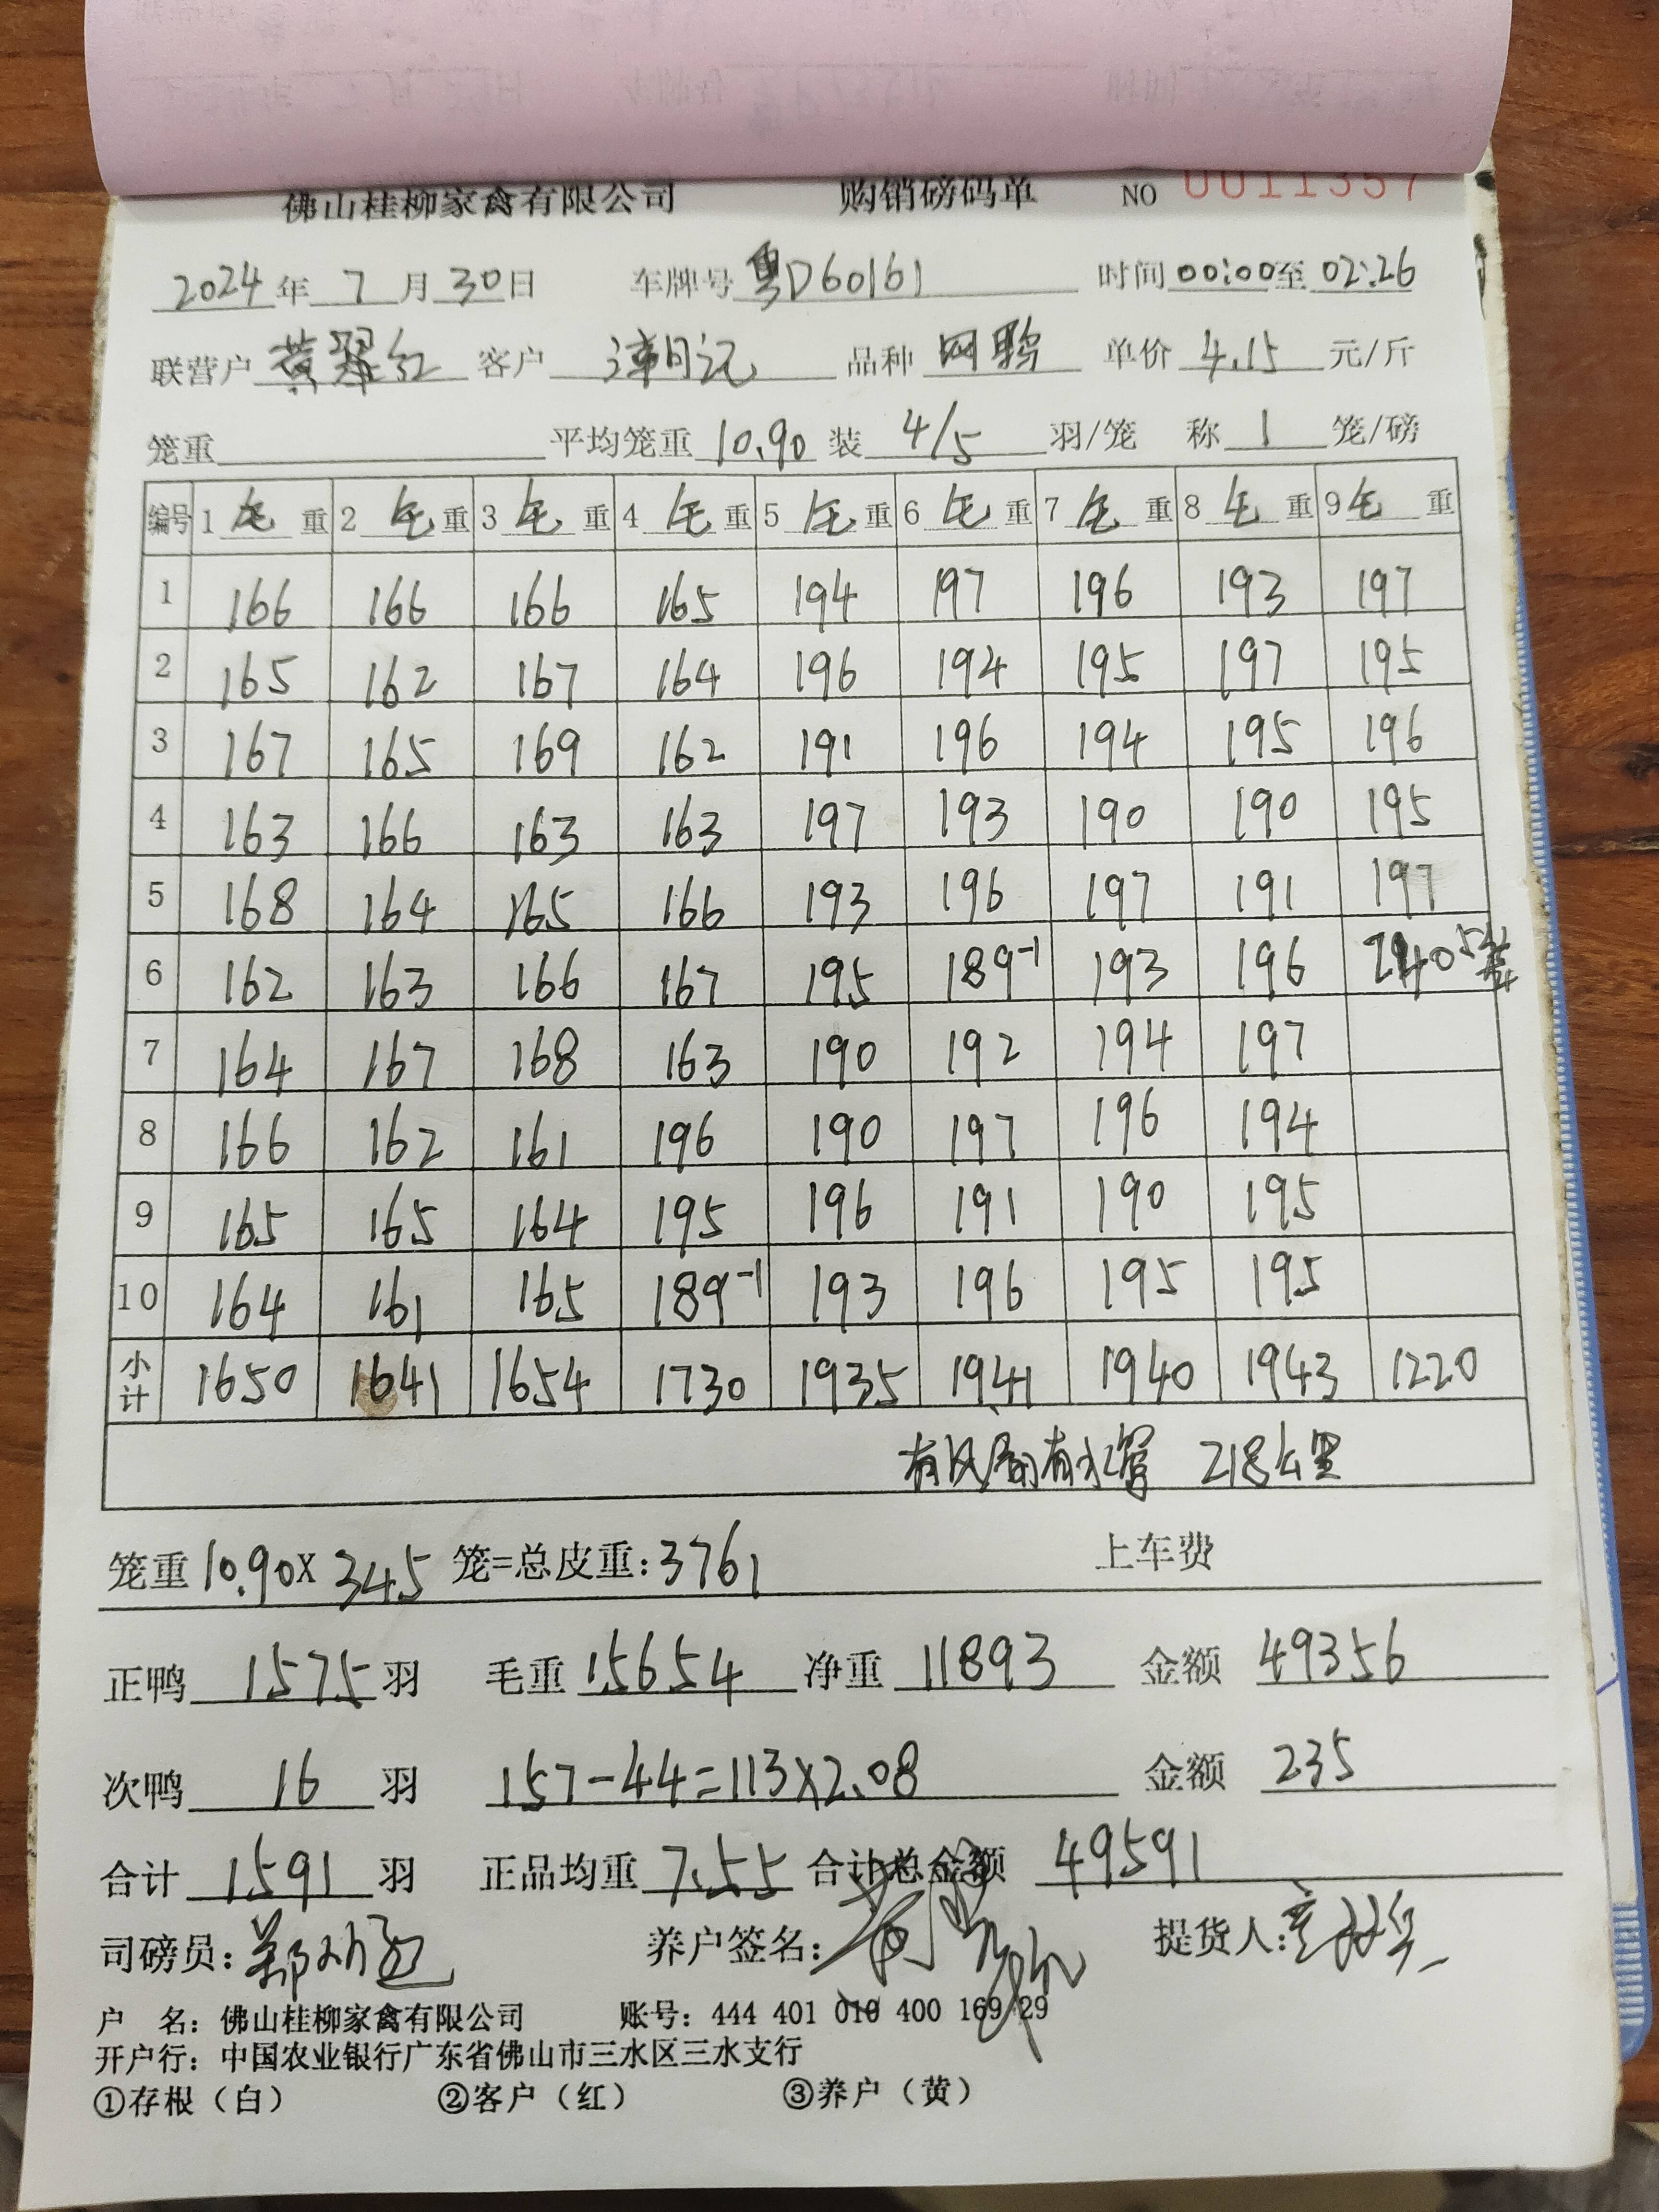 佛山桂柳家禽有限公司 购销磅码单 NO 0011357
2024年 7 月 30日 车牌号 粤D60161 时间 00:00至 02:26
联营户 黄翠红 客户 记 品种 单价 4.15 元/斤
笼重 平均笼重 10.90 装 4/5 羽/笼 称 1 笼/磅
编号 1 毛 重 2 毛 重 3 毛 重 4 毛 重 5 毛 重 6 毛 重 7 毛 重 8 毛 重 9 毛 重
1 166 166 166 165 194 197 196 193 197
2 165 162 167 164 196 194 195 197 195
3 167 165 169 162 191 196 194 195 196
4 163 166 163 163 197 193 190 190 195
5 168 164 165 166 193 196 197 191 197
6 162 163 166 167 195 189-1 193 196
7 164 167 168 163 190 192 194 197
8 166 162 161 196 190 197 196 194
9 165 165 164 195 196 191 190 195
10 164 161 165 189-1 193 196 195 195
小计 1650 1641 1654 1730 1935 1941 1940 1943 1220
有风 有水 218公里
笼重 10.90X 345 笼=总皮重: 3761 上车费
正鸭 1575 羽 毛重 15654 净重 11893 金额 49356
次鸭 16 羽 157-44=113X2.08 金额 235
合计 1591 羽 正品均重 7.55 合计总金额 49591
司磅员: 郑 养户签名: 提货人:
户 名: 佛山桂柳家禽有限公司 账号: 444 401 010 400 169 29
开户行: 中国农业银行广东省佛山市三水区三水支行
①存根（白） ②客户（红） ③养户（黄）